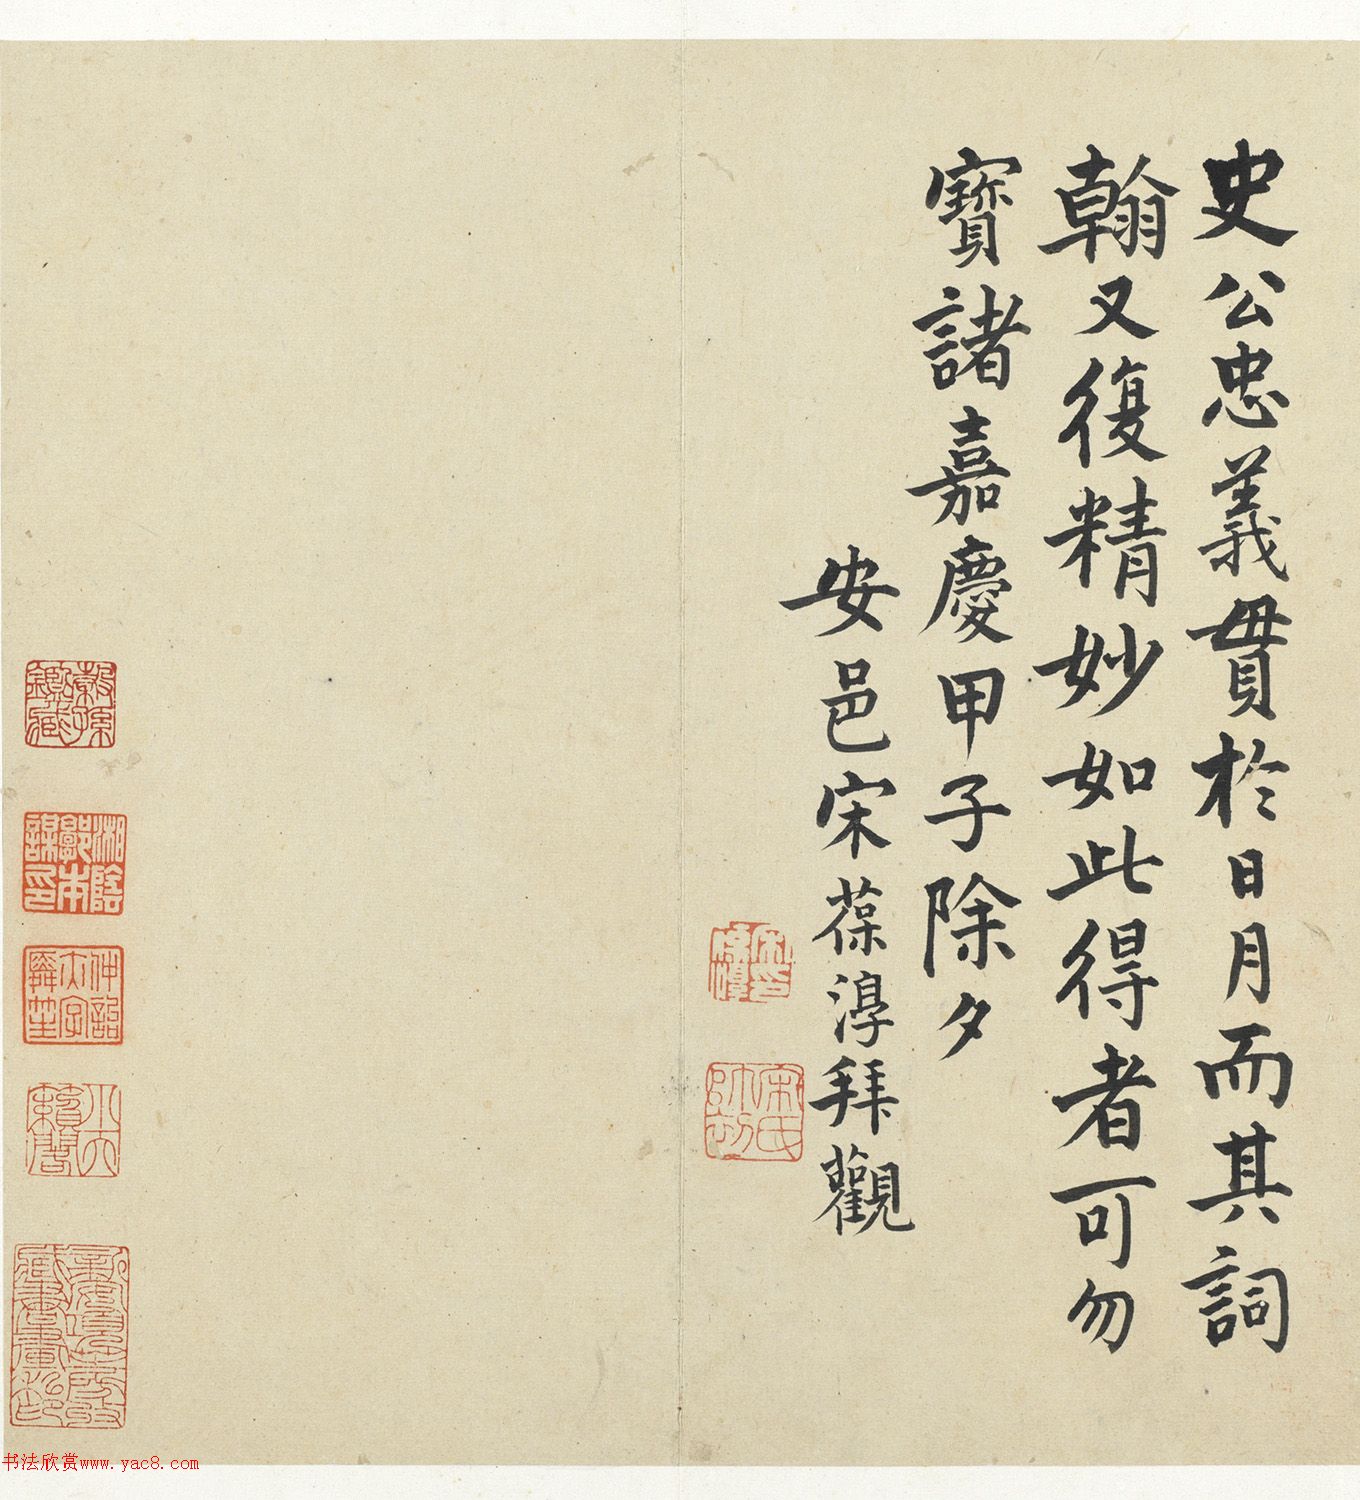 史公忠義貫於日月而其詞
翰又復精妙如此得者可勿
寶諸嘉慶甲子除夕
安邑宋葆淳拜觀
宋氏
湘陰郭本謀印
书法欣赏www.yac8.com